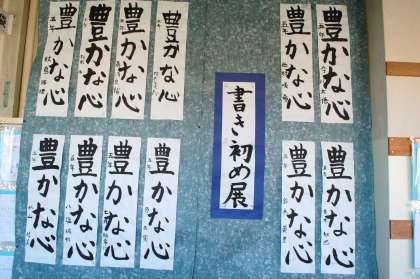 豊かな心
豊かな心
豊かな心
豊かな心
書き初め展
豊かな心
豊かな心
豊かな心
豊かな心
豊かな心
豊かな心
豊かな心
豊かな心